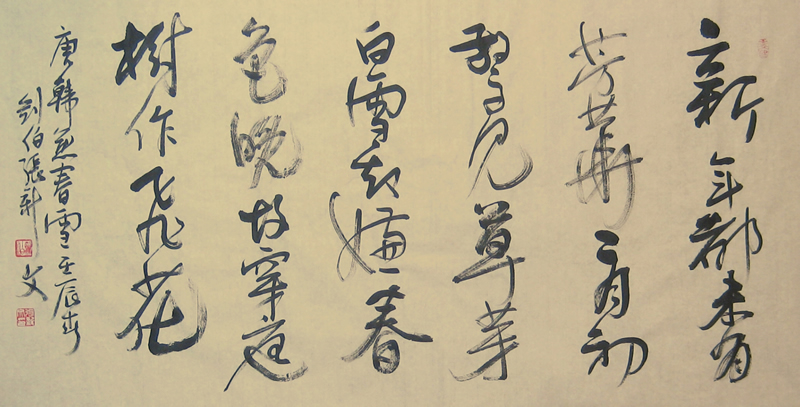 新年都未有
芳華二月初
驚見草芽
白雪却嫌春
色晚故穿庭
樹作飛花
唐韓愈春雪壬辰春
伯張新文